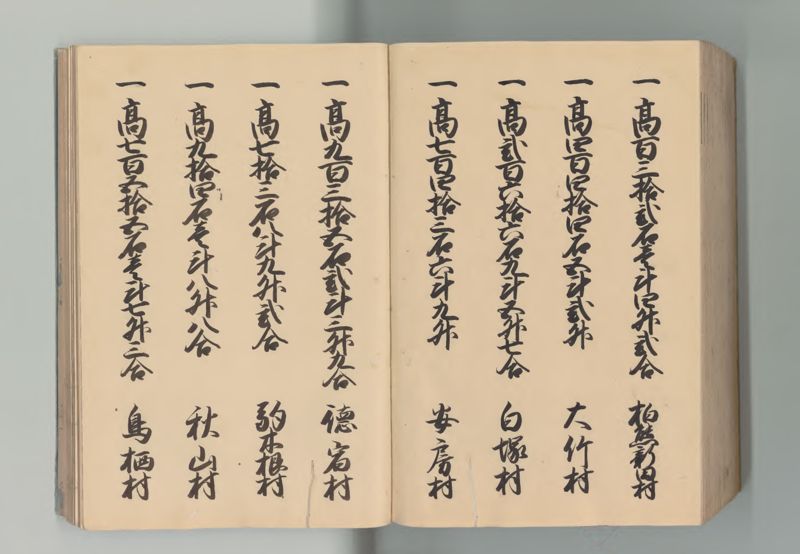 一高百三拾弐石壱斗四升弐合 柏熊新田村
一高四百四拾四石五斗弐升 大竹村
一高弐百六拾六石九斗五升七合 白塚村
一高七百四拾三石六斗九升 安房村
一高九百三拾五石弐斗三升九合 徳宿村
一高七拾三石八斗九升弐合 駒木根村
一高九拾四石壱斗八升八合 秋山村
一高七百五拾五石壱斗七升三合 鳥栖村